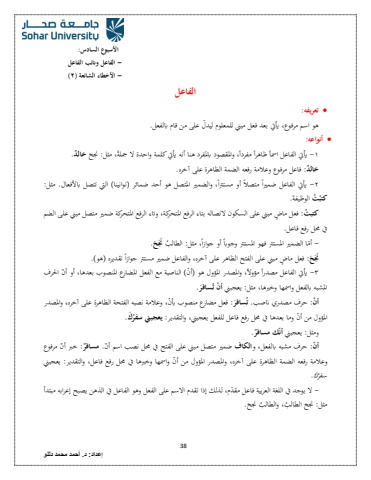 جامعة صحار
Sohar University
الأسبوع السادس:
– الفاعل ونائب الفاعل
– الأخطاء الشائعة (٢)
الفاعل
• تعريفه:
هو اسم مرفوع، يأتي بعد فعل مبني للمعلوم ليدلّ على من قام بالفعل.
• أنواعه:
١- يأتي الفاعل اسماً ظاهراً مفرداً، والمقصود بالمفرد هنا أنه يأتي كلمة واحدة لا جملة، مثل: نجح خالدٌ.
خالدٌ: فاعل مرفوع وعلامة رفعه الضمة الظاهرة على آخره.
٢- يأتي الفاعل ضميراً متصلاً أو مستتراً، والضمير المتصل هو أحد ضمائر (توانينا) التي تتصل بالأفعال. مثل:
كتبْتُ الوظيفة.
كتبتُ: فعل ماضٍ مبني على السكون لاتصاله بتاء الرفع المتحركة، وتاء الرفع المتحركة ضمير متصل مبني على الضم
في محل رفع فاعل.
- أمّا الضمير المستتر فهو المستتر وجوباً أو جوازاً، مثل: الطالبُ نَجَحَ.
نَجَحَ: فعل ماضٍ مبني على الفتح الظاهر على آخره، والفاعل ضمير مستتر جوازاً تقديره (هو).
٣- يأتي الفاعل مصدراً مؤولاً، والمصدر المؤول هو (أنْ) الناصبة مع الفعل المضارع المنصوب بعدها، أو أنّ الحرف
المشبه بالفعل واسمها وخبرها، مثل: يعجبني أنْ تُسافرَ.
أنْ: حرف مصدري ناصب. تُسافرَ: فعل مضارع منصوب بأنْ، وعلامة نصبه الفتحة الظاهرة على آخره، والمصدر
المؤول من أنْ وما بعدها في محل رفع فاعل للفعل يعجبني، والتقدير: يعجبني سفرُكَ.
ومثل: يعجبني أنّك مسافرٌ.
أنّ: حرف مشبه بالفعل، والكاف ضمير متصل مبني على الفتح في محل نصب اسم أنّ. مسافرٌ: خبر أنّ مرفوع
وعلامة رفعه الضمة الظاهرة على آخره، والمصدر المؤول من أنّ واسمها وخبرها في محل رفع فاعل، والتقدير: يعجبني
سفرُك.
- لا يوجد في اللغة العربية فاعل مقدّم، لذلك إذا تقدم الاسم على الفعل وهو الفاعل في الذهن يصبح إعرابه مبتدأ
مثل: نجح الطالبُ، والطالبُ نجح.
38
إعداد: د. أحمد محمد دللو